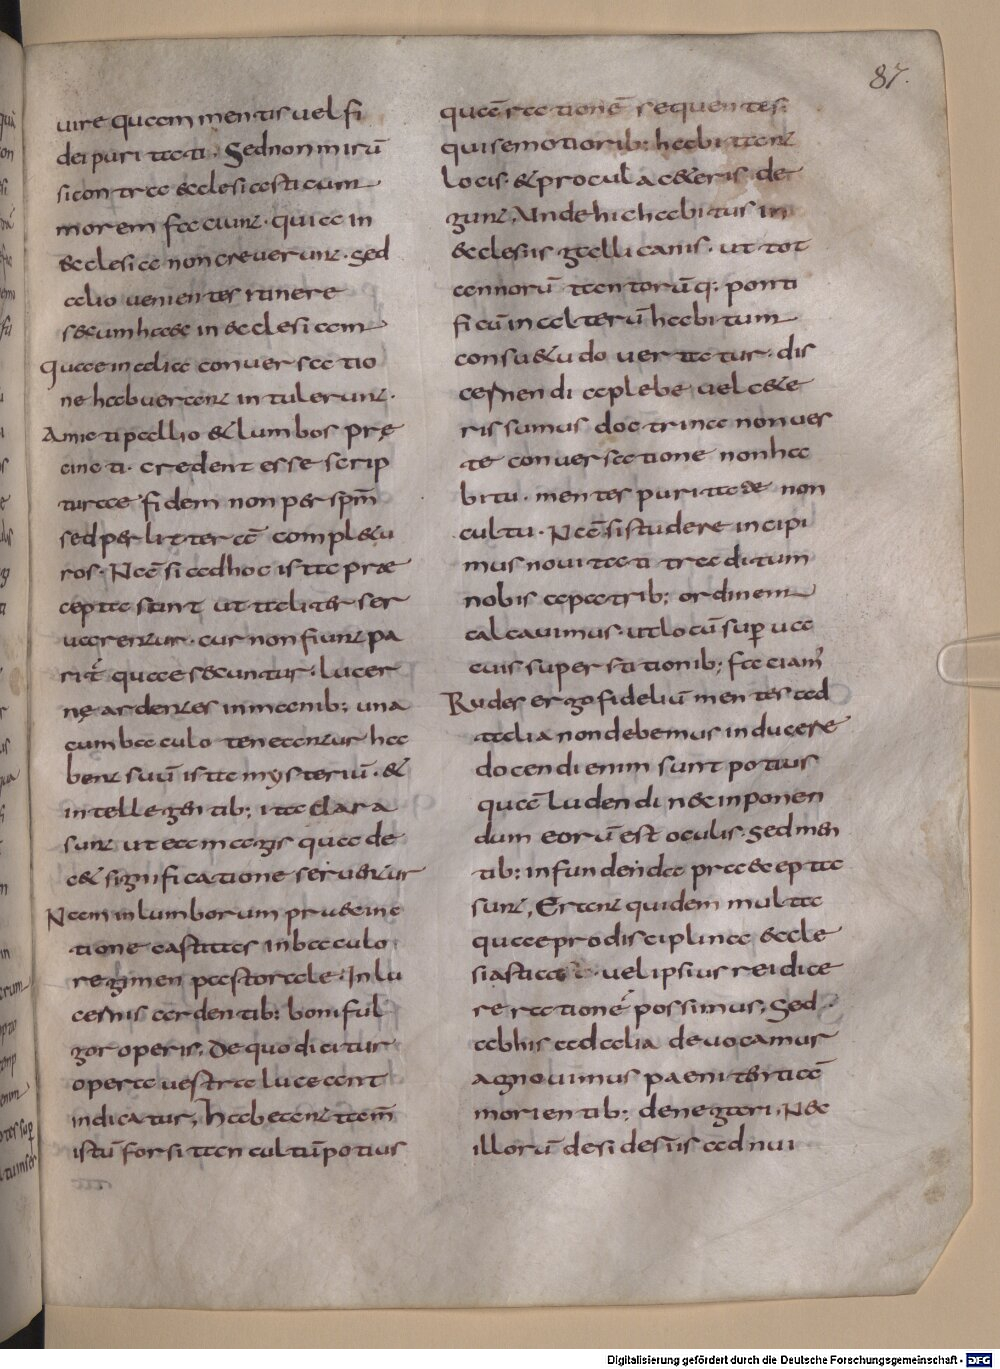 87.
uire quam mentis uel fi
dei puritati. Sed non mirũ
si contra &clesiasticum
morem faciunt. qui a in
&clesia non creuerunt. sed
alio uenientes itinere
s&um hac in &clesiam
quae in alia conuersatio
ne habuerant intulerunt.
Amicti pallio &lumbos prę
cincti. credent esse scrip
turae fidem non per spm̃
sed per litterã compl&u
ros. Nã si ad hoc ista præ
cepta sunt ut taliter ser
uarentur. cur non fiunt pa
rit̃ quae secuntur. lucer
nę ardentes in manib; una
cum baculo teneantur ha
bent suũ ista mysteriũ. &
intellegentib; ita clara
sunt ut ea magis qua de
c& significatione seruentur
Nam in lumborum pr&cinc
tione castitas in baculo
regimen pastorale. In lu
cernis ardentib; boni ful
gor operis. De quo dicitur
opera uestra luceant
indicatur, habeant tam̃
istũ forsitan cultũ potius
quã rationẽ sequentes.
qui semotiorib; habitant
locis. & procul a c&eris de
gunt, Unde hic habitus in
&clesiis gallicanis. ut tot
annorũ tantorũq; ponti
ficũ in alterũ habitum
consu&udo uertatur. dis
cernendi a plebe uel c&e
ris sumus doctrina non ues
te conuersatione non ha
bitu. mentes puritate non
cultu. Nã si studere incipi
mus nouitati traditum
nobis a patrib; ordinem
calcauimus. ut locũ sup̱ ua
cuis superstitionib; faciam̃
Rudes ergo fideliũ mentes ad
talia non debemus inducere
docendi enim sunt potius
quã ludendi n&inponen
dum eorũ est oculis. sed men
tib; infundenda praecepta
sunt, Erant quidem multa
quae pro disciplina &ccle
siastica uel ipsius rei dice
re rationẽ possimus, Sed
ab his ad alia deuocamur
agnouimus paenitentiã
morientib; denegari, Nec
illorũ desideriis ad nui
Digitalisierung gefördert durch die Deutsche Forschungsgemeinschaft - DFG